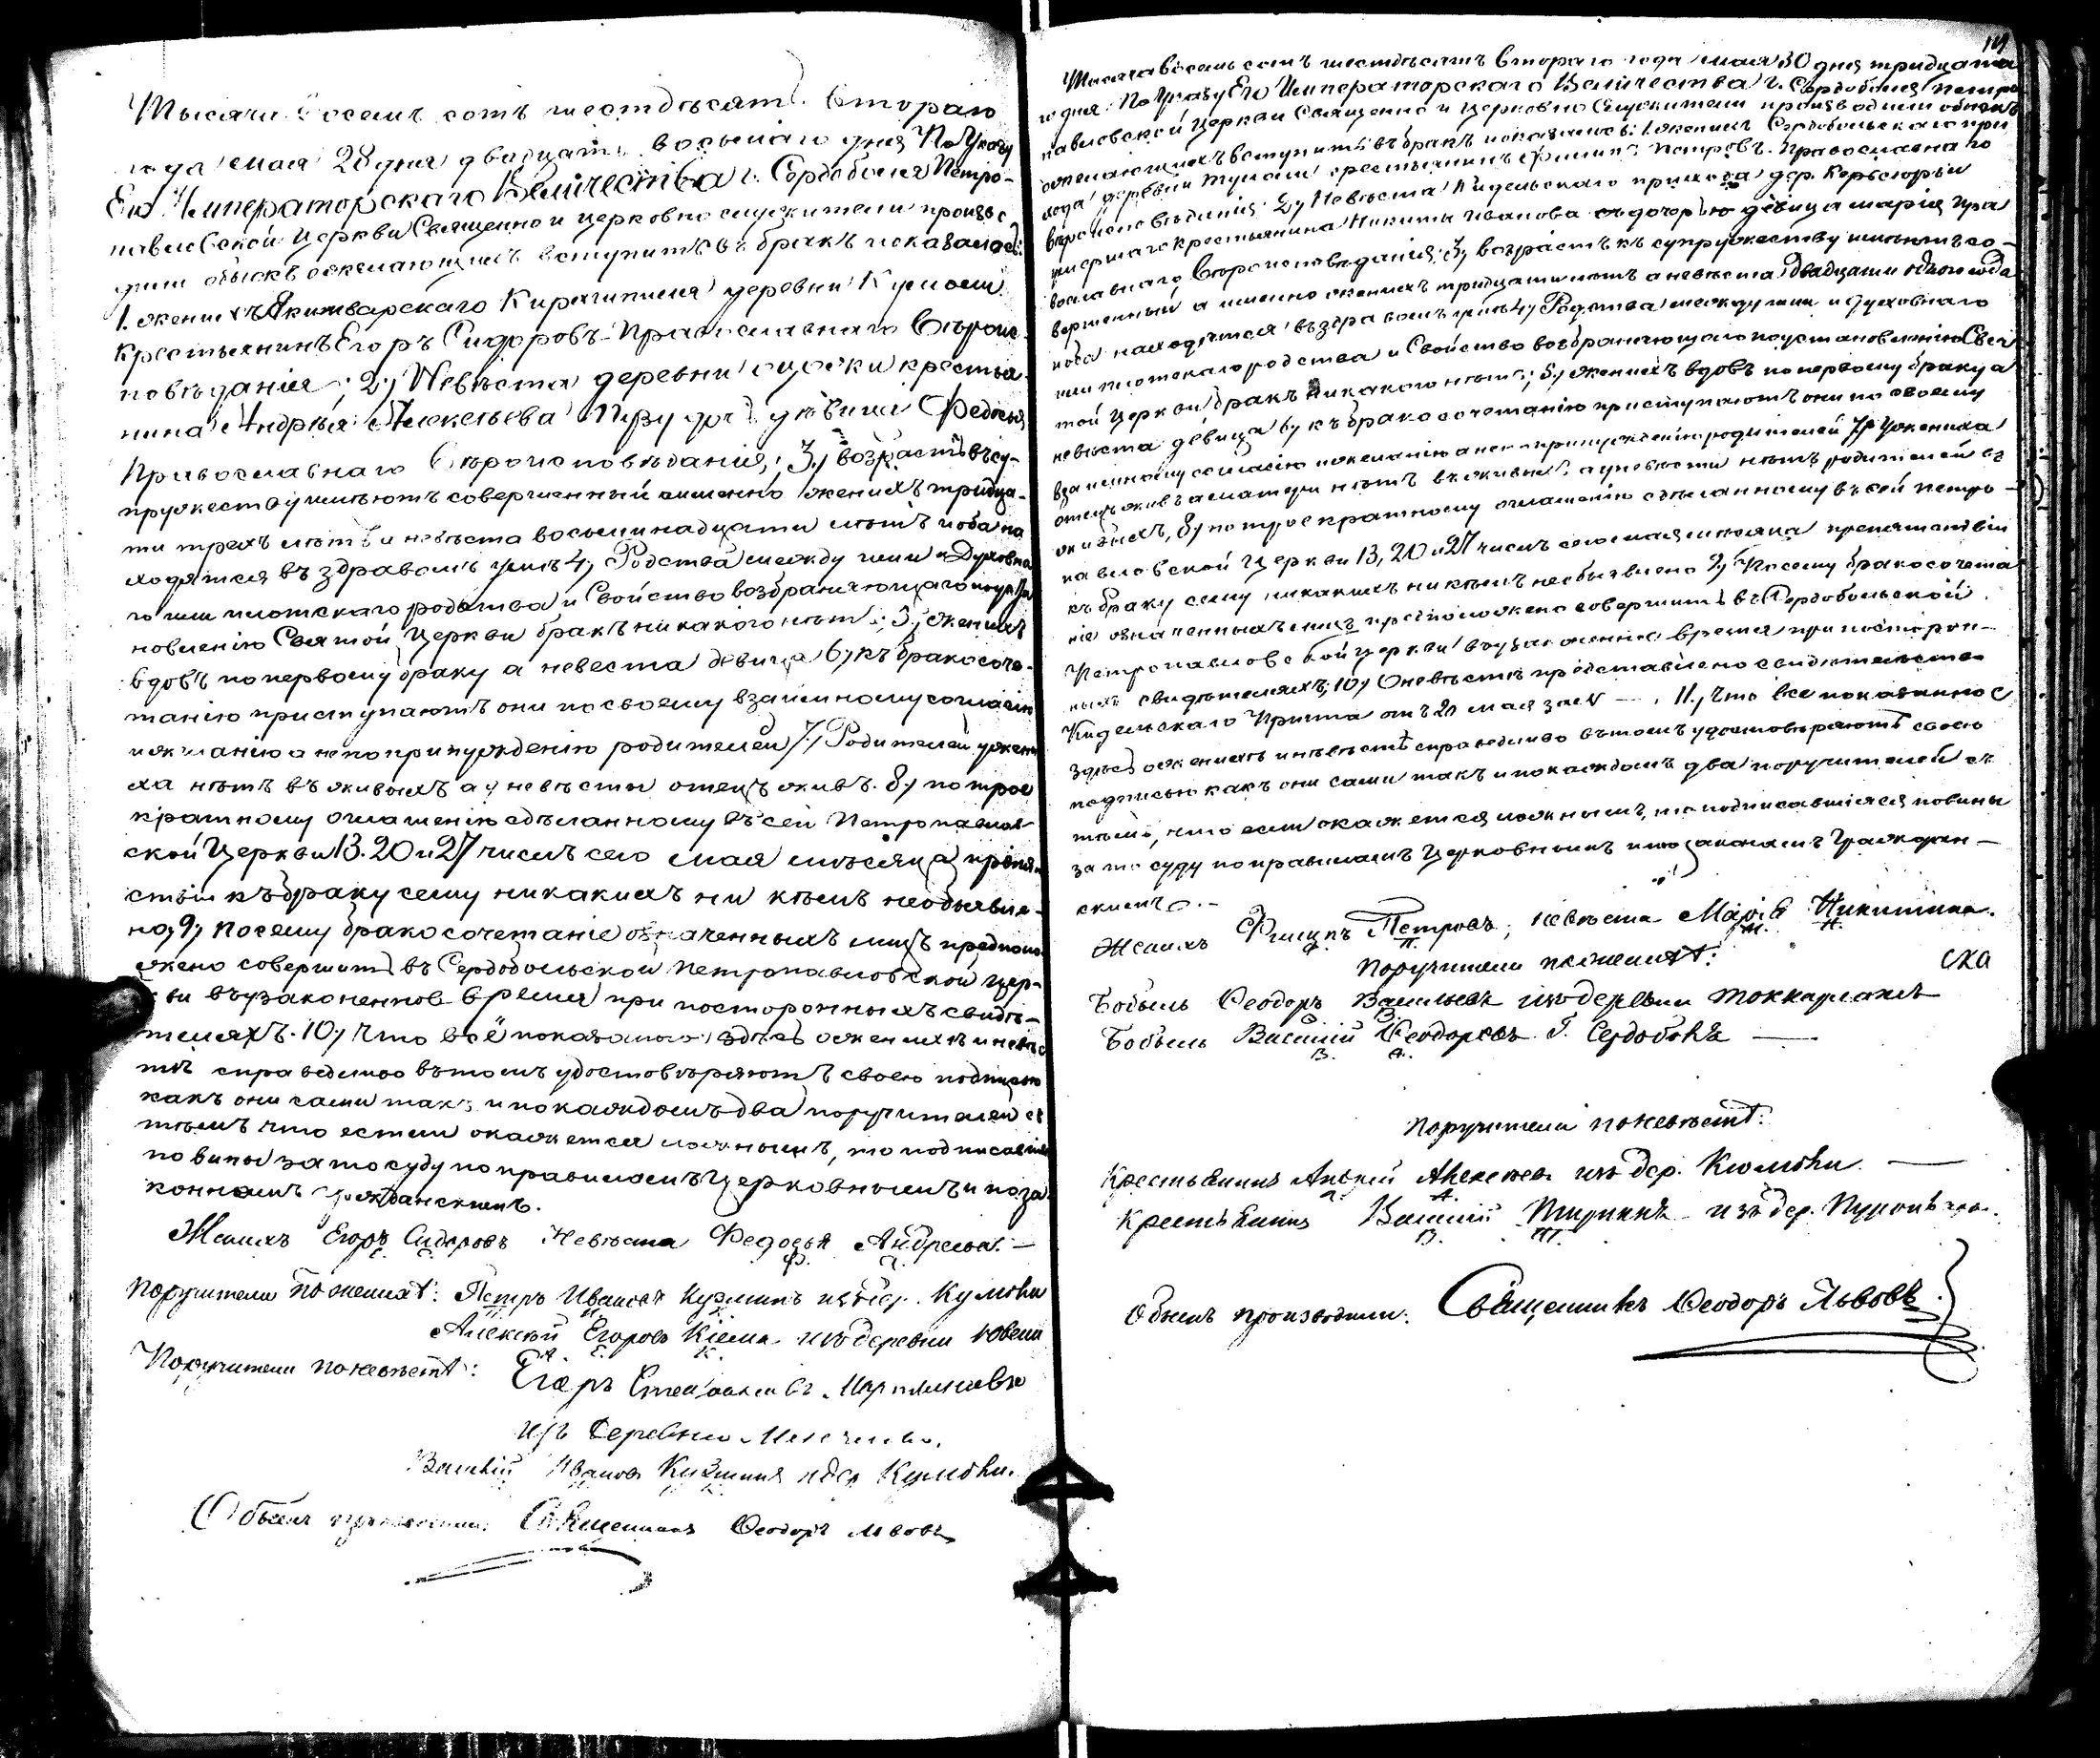 Тысяча Восемъ сотъ шестдѣсятъ втораго
года мая 28 дня двадцать восьмаго дня По Указу
Его Императорскаго Величества г. Сердоболя Петро-
павловской Церкви Священно и церковно служители произве
дили обыскъ о желающихъ вступить въ бракъ и оказалось:
1. женихъ Якимварскаго Кирхшпиля деревни Кумоли
Крестьянинъ Егоръ Сидоровъ Православнаго Вѣроис-
повѣданія; 2) Невѣста деревни крестья-
нина Андрея Алексѣева дочь дѣвица Федосья
Православнаго Вѣроисповѣданія; 3) возрастъ въ су-
пружеству имѣютъ совершенный именно женихъ тридца-
ти трехъ лѣтъ и невѣста восьминадцати лѣтъ и оба на
ходятся въ здравомъ умѣ 4) Родства между ими и Духовна
го или плотскаго родства и Свойство возбраняющаго по уста
новленію Святой Церкви бракъ никакого нѣтъ; 5) женихъ
вдовъ по первому браку а невеста девица 6) къ бракосоче-
танію приступаютъ они по своему взаимному согласію
и желанію а не по принужденію родителей 7) Родителей у жени
ха нѣтъ въ живыхъ а у невѣсты отецъ живъ. 8) по трое
кратному оглашенію сдѣланному въ сей Петропавлов-
ской Церкви 13. 20 и 27 числъ сего мая мѣсяца препят
ствіи къ браку сему никакихъ ни кѣмъ необъявле-
но, 9) посему бракосочетаніе означенныхъ лицъ предполо
жено совершить въ Сердобольской Петропавловской цер-
кви въ узаконенное время при постороннихъ свидѣ-
теляхъ. 10) Что всё показанное здѣсь о женихѣ и невѣс
тѣ справедливо въ томъ удостовѣряютъ своею подписью
какъ они сами такъ и по каждомъ два поручителей съ
тѣмъ что естли окажется ложнымъ, то подписавшіе
повины за то суду по правиламъ Церковнымъ и по за
коннамъ гражданскимъ.
Женихъ Егоръ Сидоровъ Невѣста Федосья Андреева. —
Поручители по женихѣ: Петръ Ивановъ Кузминъ изъ дер. Кумоли
Алексѣй Егоровъ изъ деревни
Поручители по невѣстѣ: Егоръ
изъ деревни
Василій Ивановъ Кузминъ дер Кумоли.
Обыскъ производили: Священникъ Ѳеодоръ Львовъ
Тысяча восемь сотъ шестдѣсятъ втораго года мая 30 дня тридцата
го дня: По Указу Его Императорскаго Величества г. Сердоболя Петро
павловской Церкви Священно и Церковно Служители производили обыскъ
о желающихъ вступить въ бракъ и оказалось: 1. женихъ Сердобольскаго при
хода деревни крестьянинъ Филипъ Петровъ. Православнаго
вѣроисповѣданія: 2) Невѣста Кидельскаго прихода дер.
умершаго крестьянина Никиты Иванова дочерью дѣвица Марія Пра
вославнаго Вѣроисповѣданія; 3) возрастъ къ супружеству имѣютъ со-
вершенный а именно женихъ тридцати лѣтъ а невѣста двадцати одного года
и оба находятся въ здравомъ умѣ 4) Родства между ими и духовнаго
или плотскаго родства и Свойство возбраняющаго по установленію Свя
той Церкви бракъ никакого нѣтъ; 5) женихъ вдовъ по первому браку а
невѣста дѣвица 6) къ бракосочетанію приступаютъ они по своему
взаимному согласію и желанію а не по принужденію родителей 7) У жениха
отецъ живъ а матери нѣтъ въ живыхъ, а у невѣсты нѣтъ родителей въ
живыхъ, 8) по троекратному оглашенію сдѣланному въ сей Петро-
павловской Церкви 13, 20 и 27 числъ сего мая мѣсяца препятствіи
къ браку сему никакихъ ни кѣмъ необъявлено 9) Посему бракосочета
ніе означенныхъ лицъ предположено совершить въ Сердобольской
Петропавловской церкви въ узаконенное время при посторон-
ныхъ свидѣтеляхъ; 10) О невѣстѣ представлено свидѣтельство
Кидельскаго Причта отъ 20 мая за № — . 11.) Что все показанное
здѣсь о женихѣ и невѣстѣ справедливо въ томъ удостовѣряютъ своею
подписью какъ они сами такъ и по каждомъ два поручителей съ
тѣмъ, что если окажется ложнымъ, то подписавшіеся повины
за то суду по правиламъ Церковнымъ и по законамъ Граждан-
скимъ. -
Женихъ Филипъ Петровъ, невѣста Марія Никитина.
Поручители по женихѣ:
Бобыль Ѳеодоръ Васильевъ изъ деревни
Бобыль Василій Ѳеодоровъ Г. Сердоболь —
Поручители по невѣстѣ:
Крестьянинъ Андрей Алексѣевъ изъ дер. Кюмоли —
Крестьянинъ Василій изъ дер.
Обыскъ производили: Священникъ Ѳеодоръ Львовъ